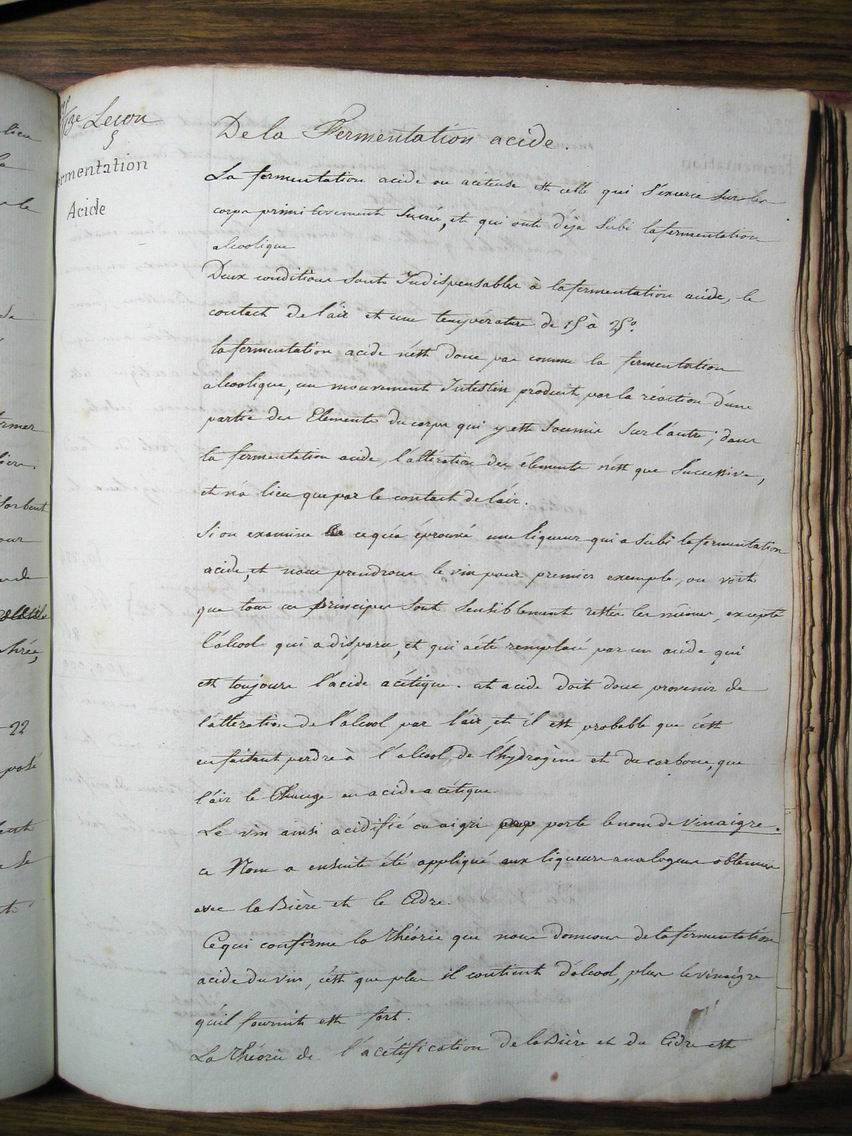 Leçon
§
Fermentation
Acide
De la Fermentation acide.
La fermentation acide ou aceteuse est celle qui s'exerce sur les
corps primitivement sucrés, et qui ont deja subi la fermentation
alcoolique
Deux conditions sont Indispensables à la fermentation acide, le
contact de l'air et une température de 15 à 25°.
la fermentation acide n'est donc pas comme la fermentation
alcoolique, un mouvement Intestin produit par la réaction d'une
partie des Elements du corps qui y est soumis sur l'autre; dans
la fermentation acide, l'altération des éléments n'est que successive,
et n'a lieu que par le contact de l'air.
Si on examine ce qu'a éprouvé une liqueur qui a subi la fermentation
acide, et nous prendrons le vin pour premier exemple, on voit
que tous ces principes sont sensiblement restés les mêmes, excepté
l'alcool qui a disparu, et qui a été remplacé par un acide qui
est toujours l'acide acétique. cet acide doit donc provenir de
l'altération de l'alcool, par l'air, et il est probable que c'est
en faisant perdre à l'alcool, de l'hydrogène et du carbone, que
l'air le Change en acide acétique
Le vin ainsi acidifié ou aigri porte le nom de vinaigre.
ce Nom a ensuite été appliqué aux liqueurs analogues obtenues
avec la Bière et le Cidre.
Ce qui confirme la théorie que nous donnons de la fermentation
acide du vin, c'est que plus il contient d'alcool, plus le vinaigre
qu'il fournit est fort.
La théorie de l'acétification de la Bière et du Cidre est